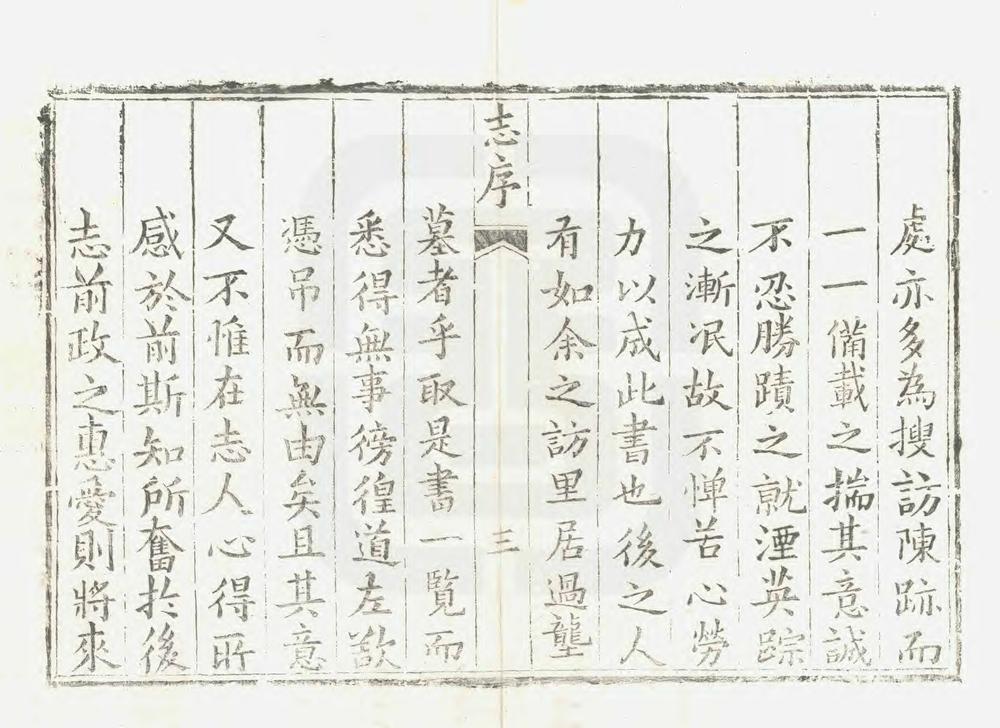 處亦多為搜訪陳跡而
一一備載之揣其意誠
不忍勝蹟之就湮英踪
之漸泯故不憚苦心勞
力以成此書也後之人
有如余之訪里居過壟
志序
三
墓者乎取是書一覽而
悉得無事徬徨道左欷
憑吊而無由矣且其意
又不惟在志人心得所
感於前斯知所奮於後
志前政之惠愛則將來